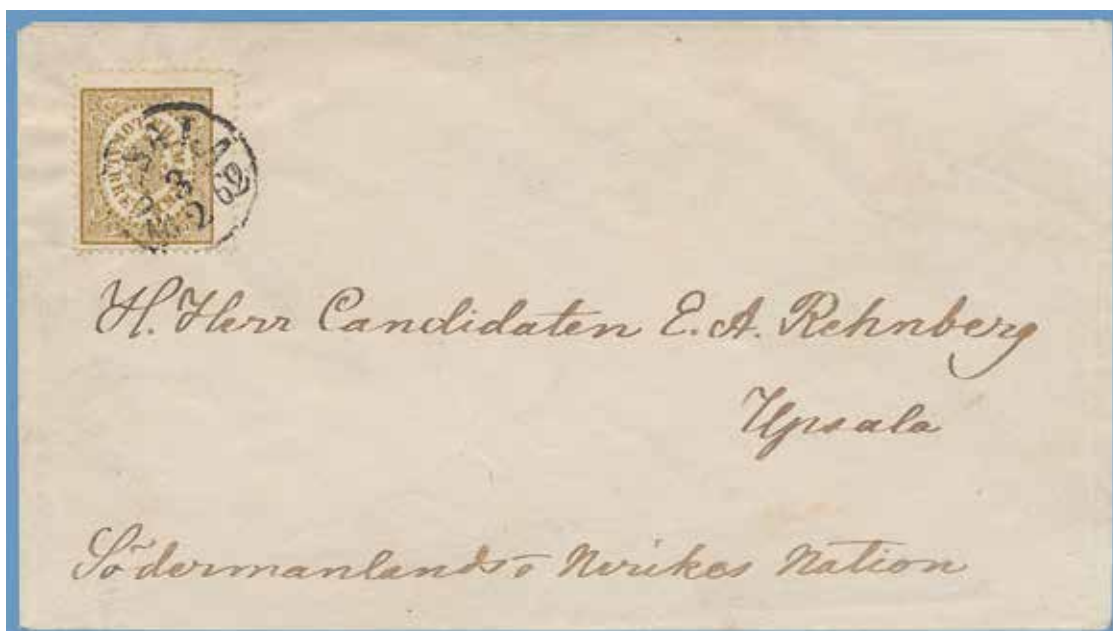 UPSALA
3
2 69
H. Herr Candidaten E. A. Rehnberg
Upsala
Södermanlands o Nerikes Nation